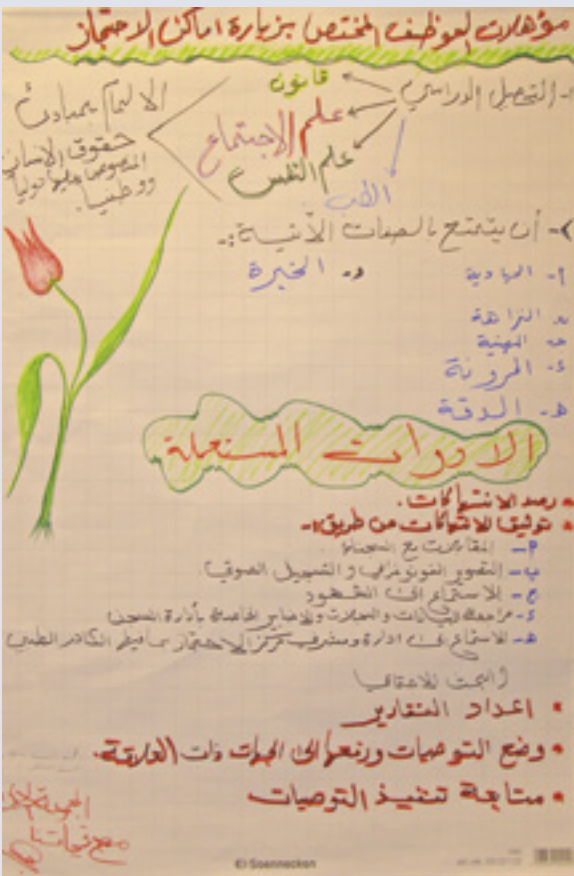 مؤهلات الموظف المختص بزيارة اماكن الاحتجاز
١- التحصيل الدراسي
قانون
علم الاجتماع
علم النفس
الطب
الالمام بمبادئ
حقوق الانسان
المنصوص عليها دوليا
ووطنيا.
٢- أن يتمتع بالصفات الآتية :-
أ- الحيادية
و- الخبرة
ب- النزاهة
ج- المهنية
د- المرونة
هـ- الدقة
الادوات المستعملة
• رصد الانتهاكات.
• توثيق الانتهاكات من طريق:-
أ- المقابلات مع السجناء
ب- التصوير الفوتوغرافي والتسجيل الصوتي
ج- الاستماع الى الشهود
د- مراجعة البيانات والسجلات والاضابير الخاصة بأدارة السجن
هـ- الاستماع الى ادارة ومشرفي مركز الاحتجاز بما فيهم الكادر الطبي
• اعداد التقارير
• وضع التوصيات ورفعها الى الجهات ذات العلاقة.
• متابعة تنفيذ التوصيات
المجموعة
مع تحياتنا
Soennecken